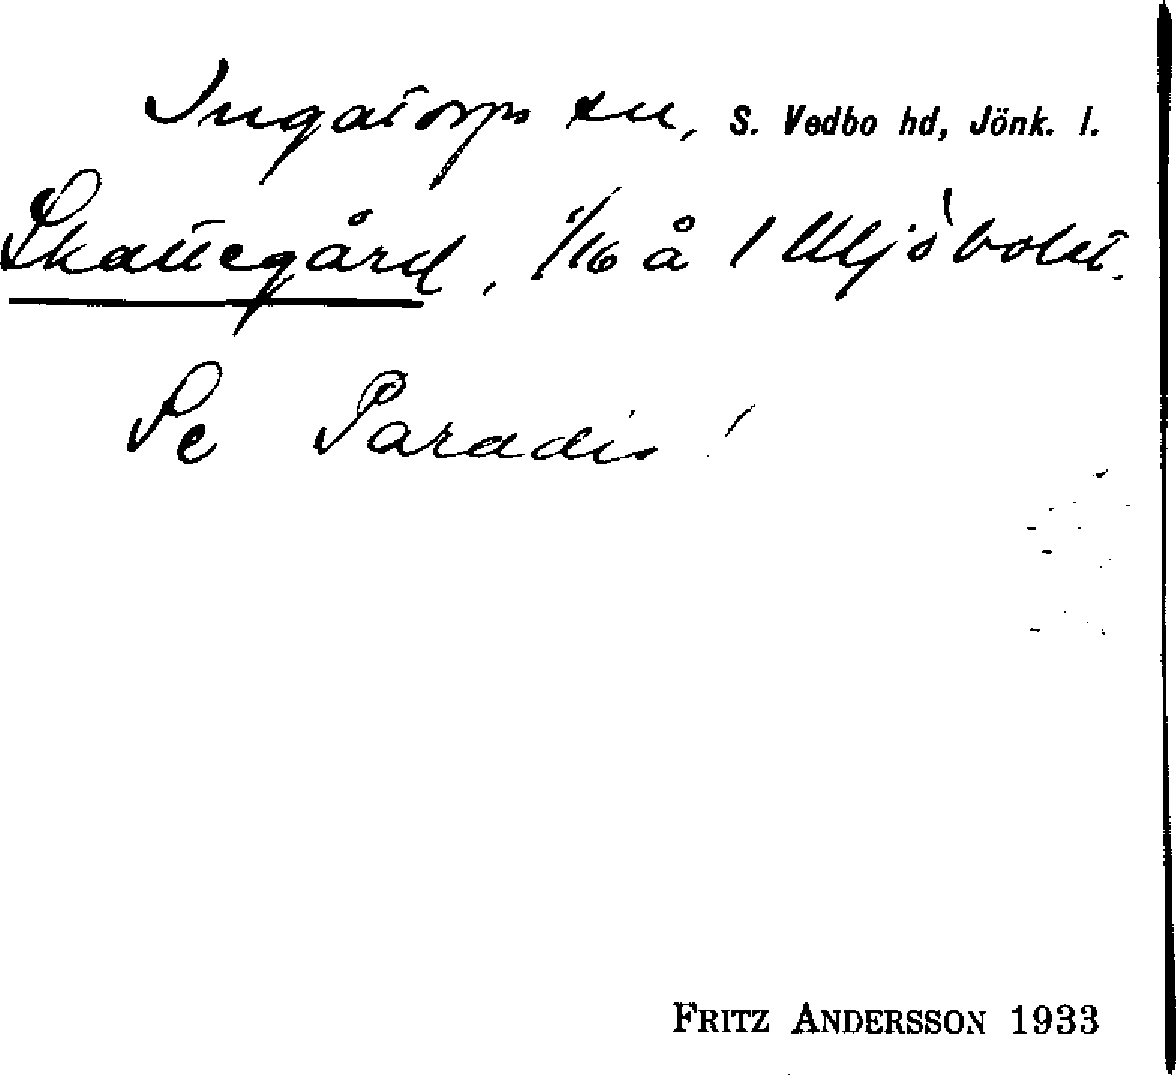 Ingatorps sn, S. Vedbo hd, Jönk. l.
Skattegård, 1/16 å 1
Se Paradis!
FRITZ ANDERSSON 1933